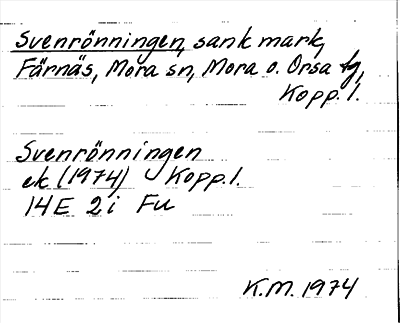 Svenrönningen, sank mark,
Färnäs, Mora sn, Mora o. Orsa tg,
Kopp. l.
Svenrönningen
ek (1974) Kopp. l.
14E 2i Fu
K.M. 1974